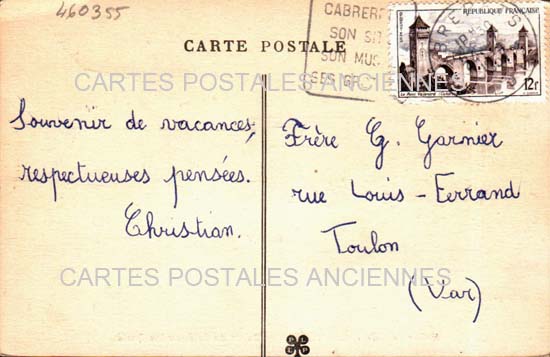 460355
CARTE POSTALE
CABRER
SON SIT
SON MUS
SES GR
REPUBLIQUE FRANÇAISE
12f
CARTES POSTALES ANCIENNES
Souvenir de vacances,
respectueuses pensées.
Christian.
Frère G. Garnier
rue Louis - Ferrand
Toulon
(Var)
CARTES POSTALES ANCIENNES